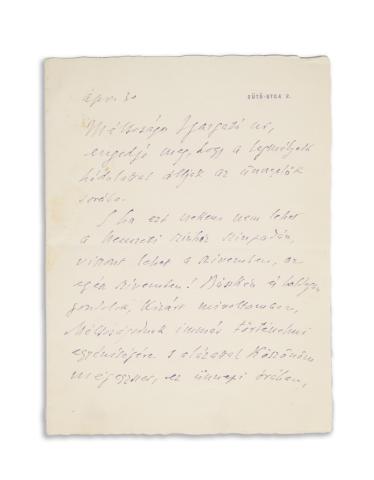 SÜTŐ-UTCA 2.
ápr. 30
Méltóságos Igazgató úr,
engedje meg, hogy a legmélyebb
hódolattal álljak az ünneplők
sorába.
S ha ezt nekem nem lehet
a Nemzeti Színház színpadán,
viszont lehet a szivemben, az
egész szivemben! Büszkén és boldogan
gondolok,
Méltóságodnak immár történelmi
egyéniségére s alázattal köszönöm
mégegyszer, ez ünnepi órában,